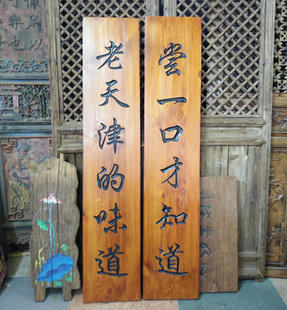 尝一口才知道
老天津的味道